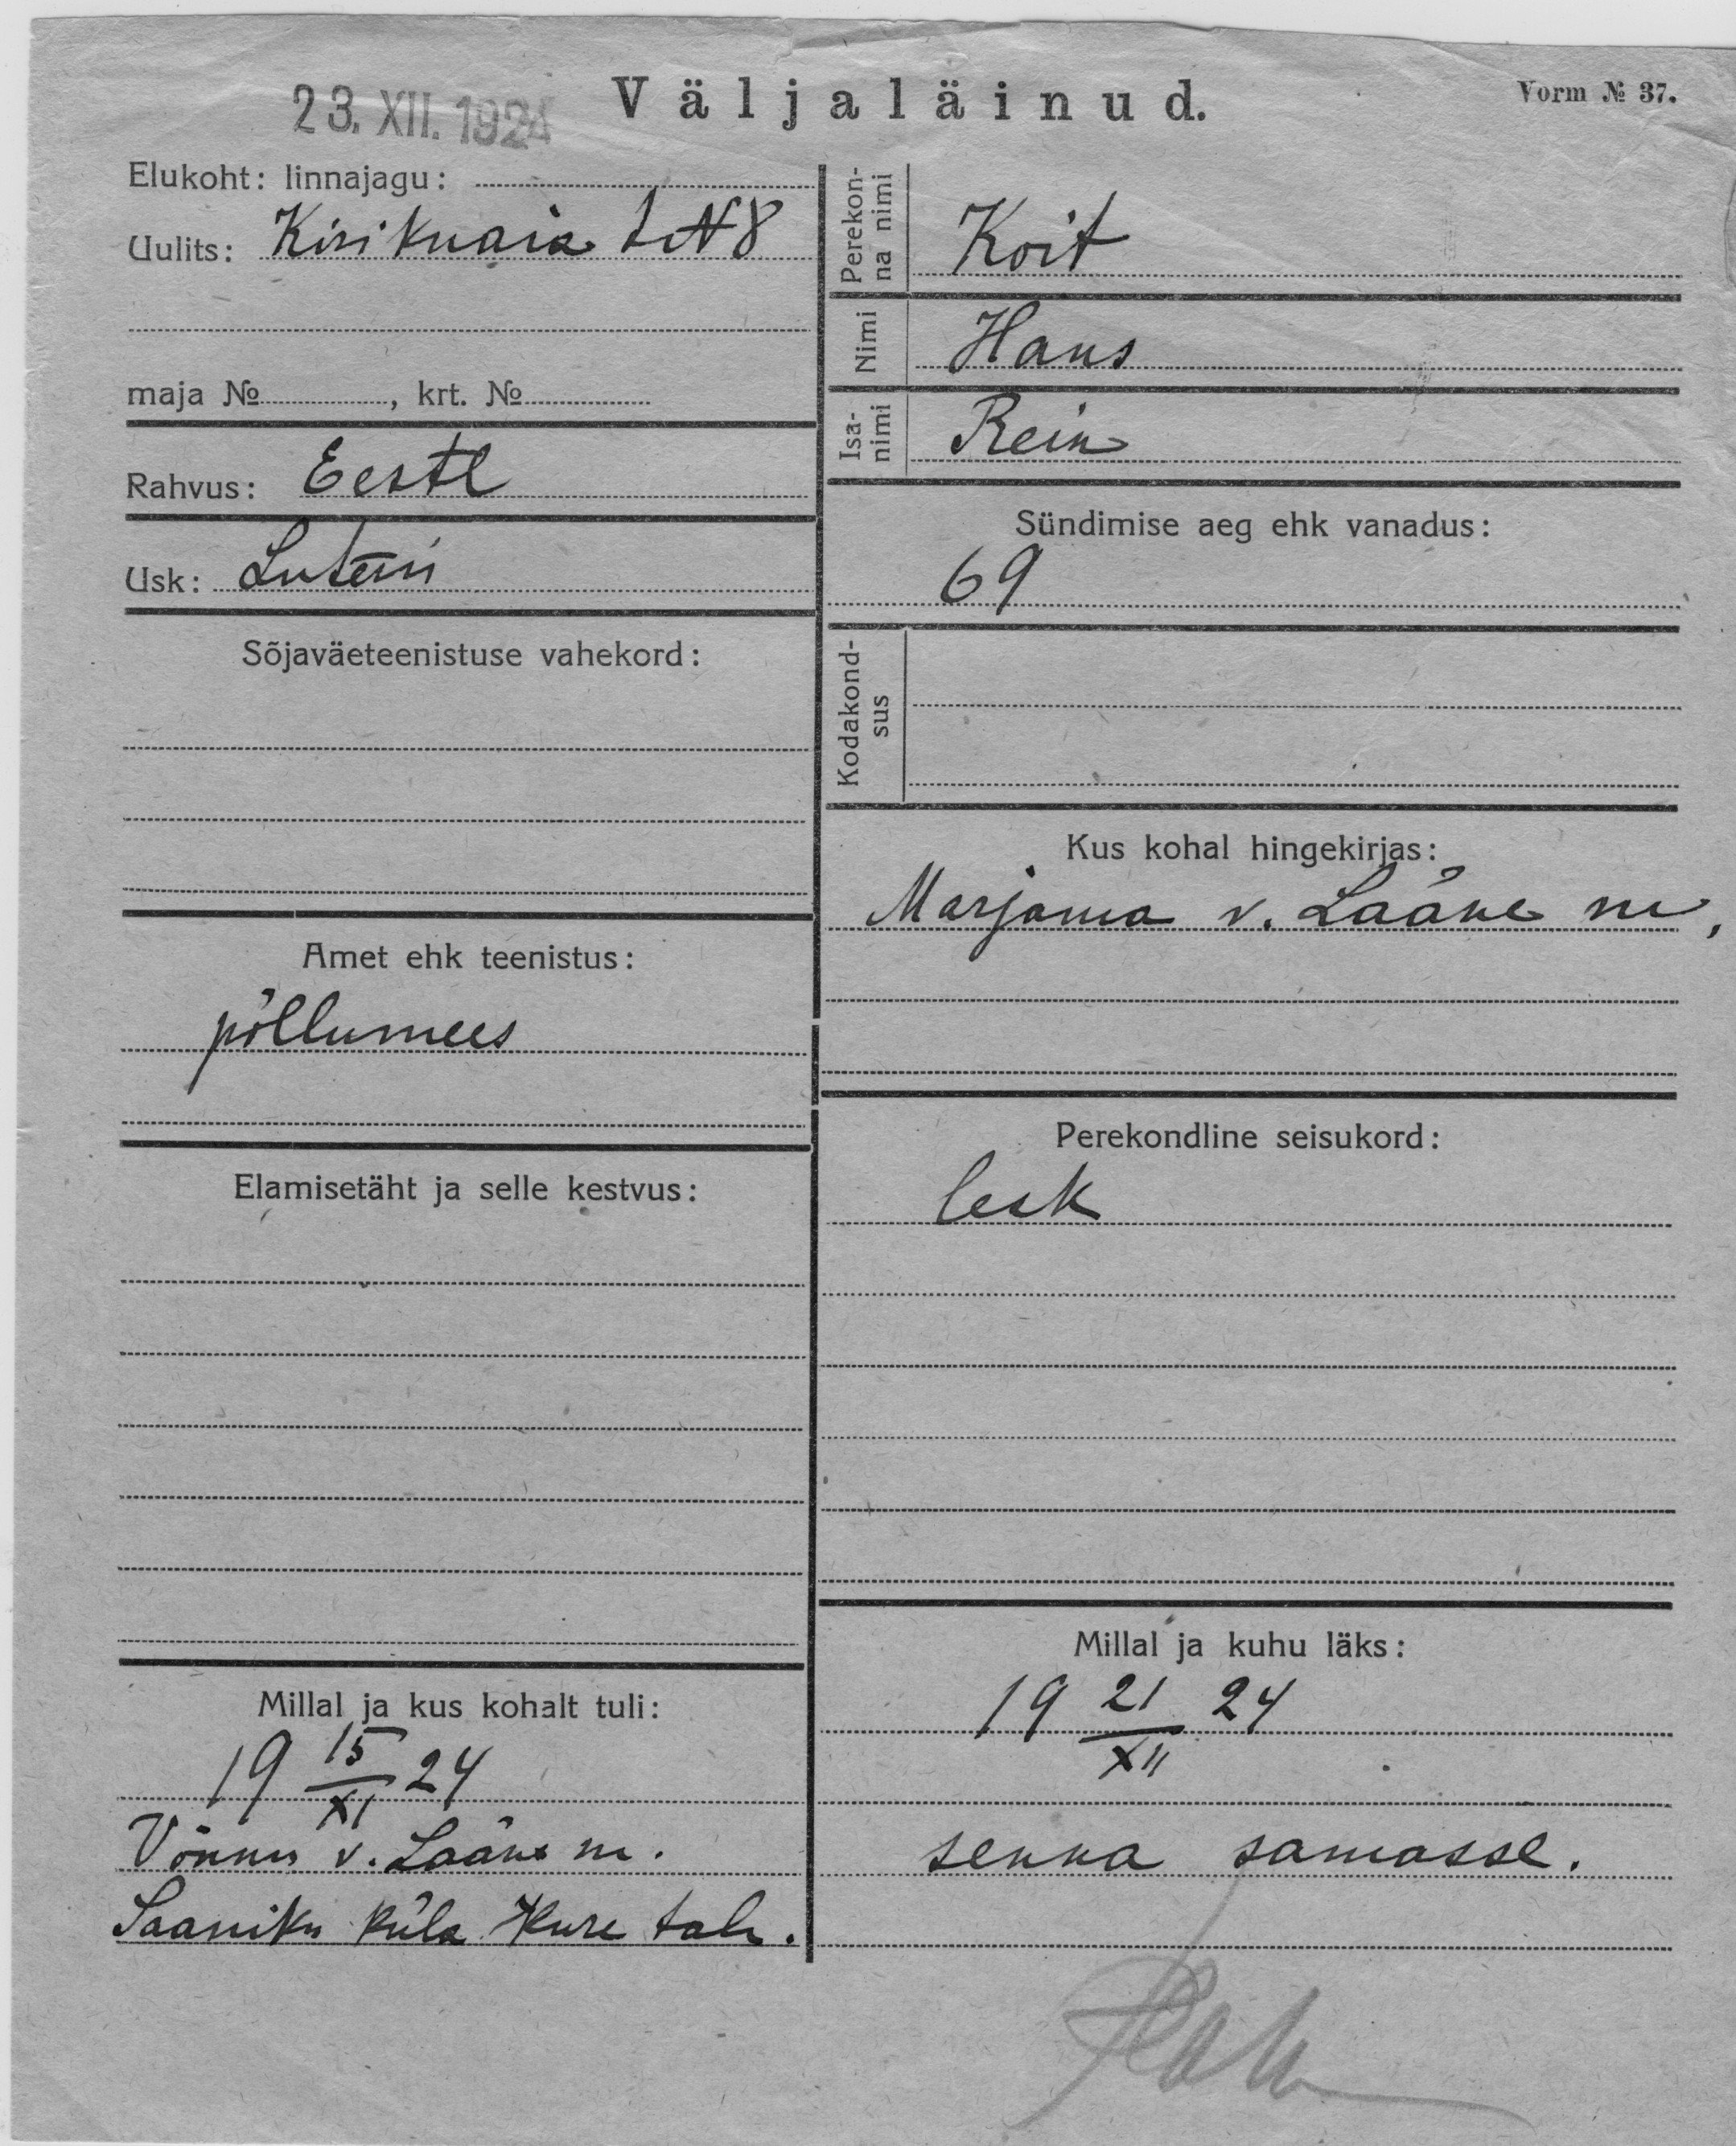 23. XII. 1924
Väljaläinud.
Vorm № 37.
Elukoht: linnajagu:
Uulits: Kirikuaia t. N 8
maja №, krt. №
Rahvus: Eestl
Usk: Luteri
Sõjaväeteenistuse vahekord:
Amet ehk teenistus:
põllumees
Elamisetäht ja selle kestvus:
Millal ja kus kohalt tuli:
19 15/XI 24
Võnnu v. Lääne m.
Saaniku küla Kure talu.
Perekon-
na nimi
Koit
Nimi
Hans
Isa-
nimi
Rein
Sündimise aeg ehk vanadus:
69
Kodakond-
sus
Kus kohal hingekirjas:
Marjama v. Lääne m,
Perekondline seisukord:
lesk
Millal ja kuhu läks:
19 21/XII 24
senna samasse.